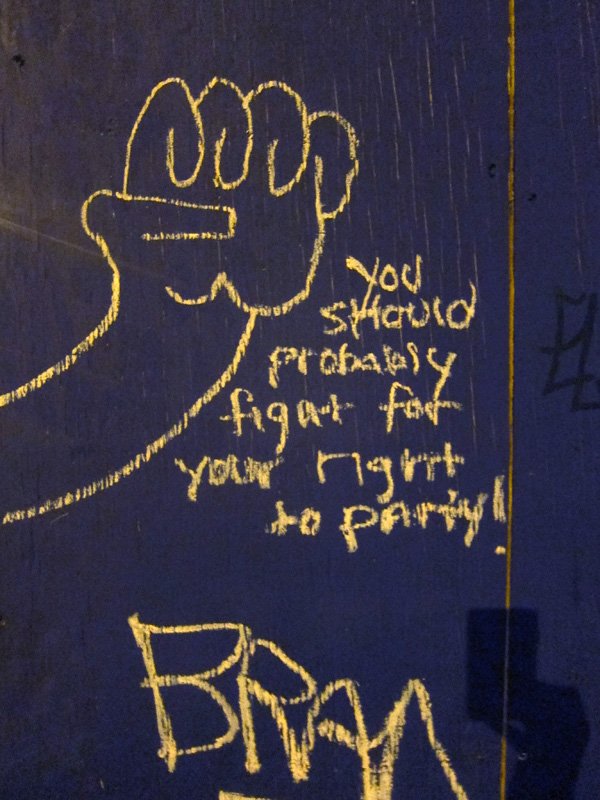 you
should
probably
fight for
your right
to party!
BRAN